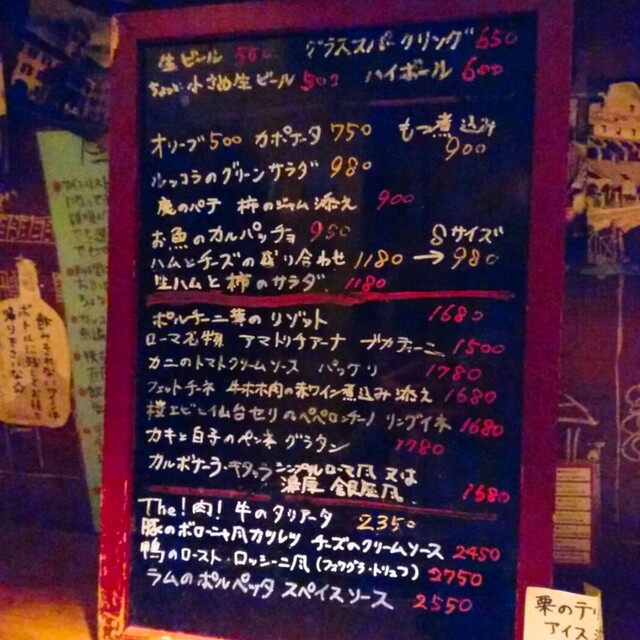 生ビール 500 グラススパークリング 650
ちょっと小さめ生ビール 500 ハイボール 600
オリーブ 500 カポナータ 750 もつ煮込み 900
ルッコラのグリーンサラダ 980
鹿のパテ 柿のジャム添え 900
お魚のカルパッチョ 950 Sサイズ
ハムとチーズの盛り合わせ 1180 → 980
生ハムと柿のサラダ 1180
ポルチーニ茸のリゾット 1680
ローマ名物 アマトリチアーナ ブカティーニ 1500
カニのトマトクリームソース パッケリ 1780
フェットチネ 牛ホホ肉の赤ワイン煮込み添え 1680
桜エビと仙台セリのペペロンチーノ リングイネ 1680
カキと白子のペンネグラタン 1780
カルボナーラ・キタッラ シンプルローマ風 又は
濃厚 銀座風 1680
The!肉! 牛のタリアータ 2350
豚のボローニャ風カツレツ チーズのクリームソース 2450
鴨のロースト・ロッシーニ風(フォワグラ・トリュフ) 2750
ラムのポルペッタ スパイスソース 2550
栗のテ
アイス